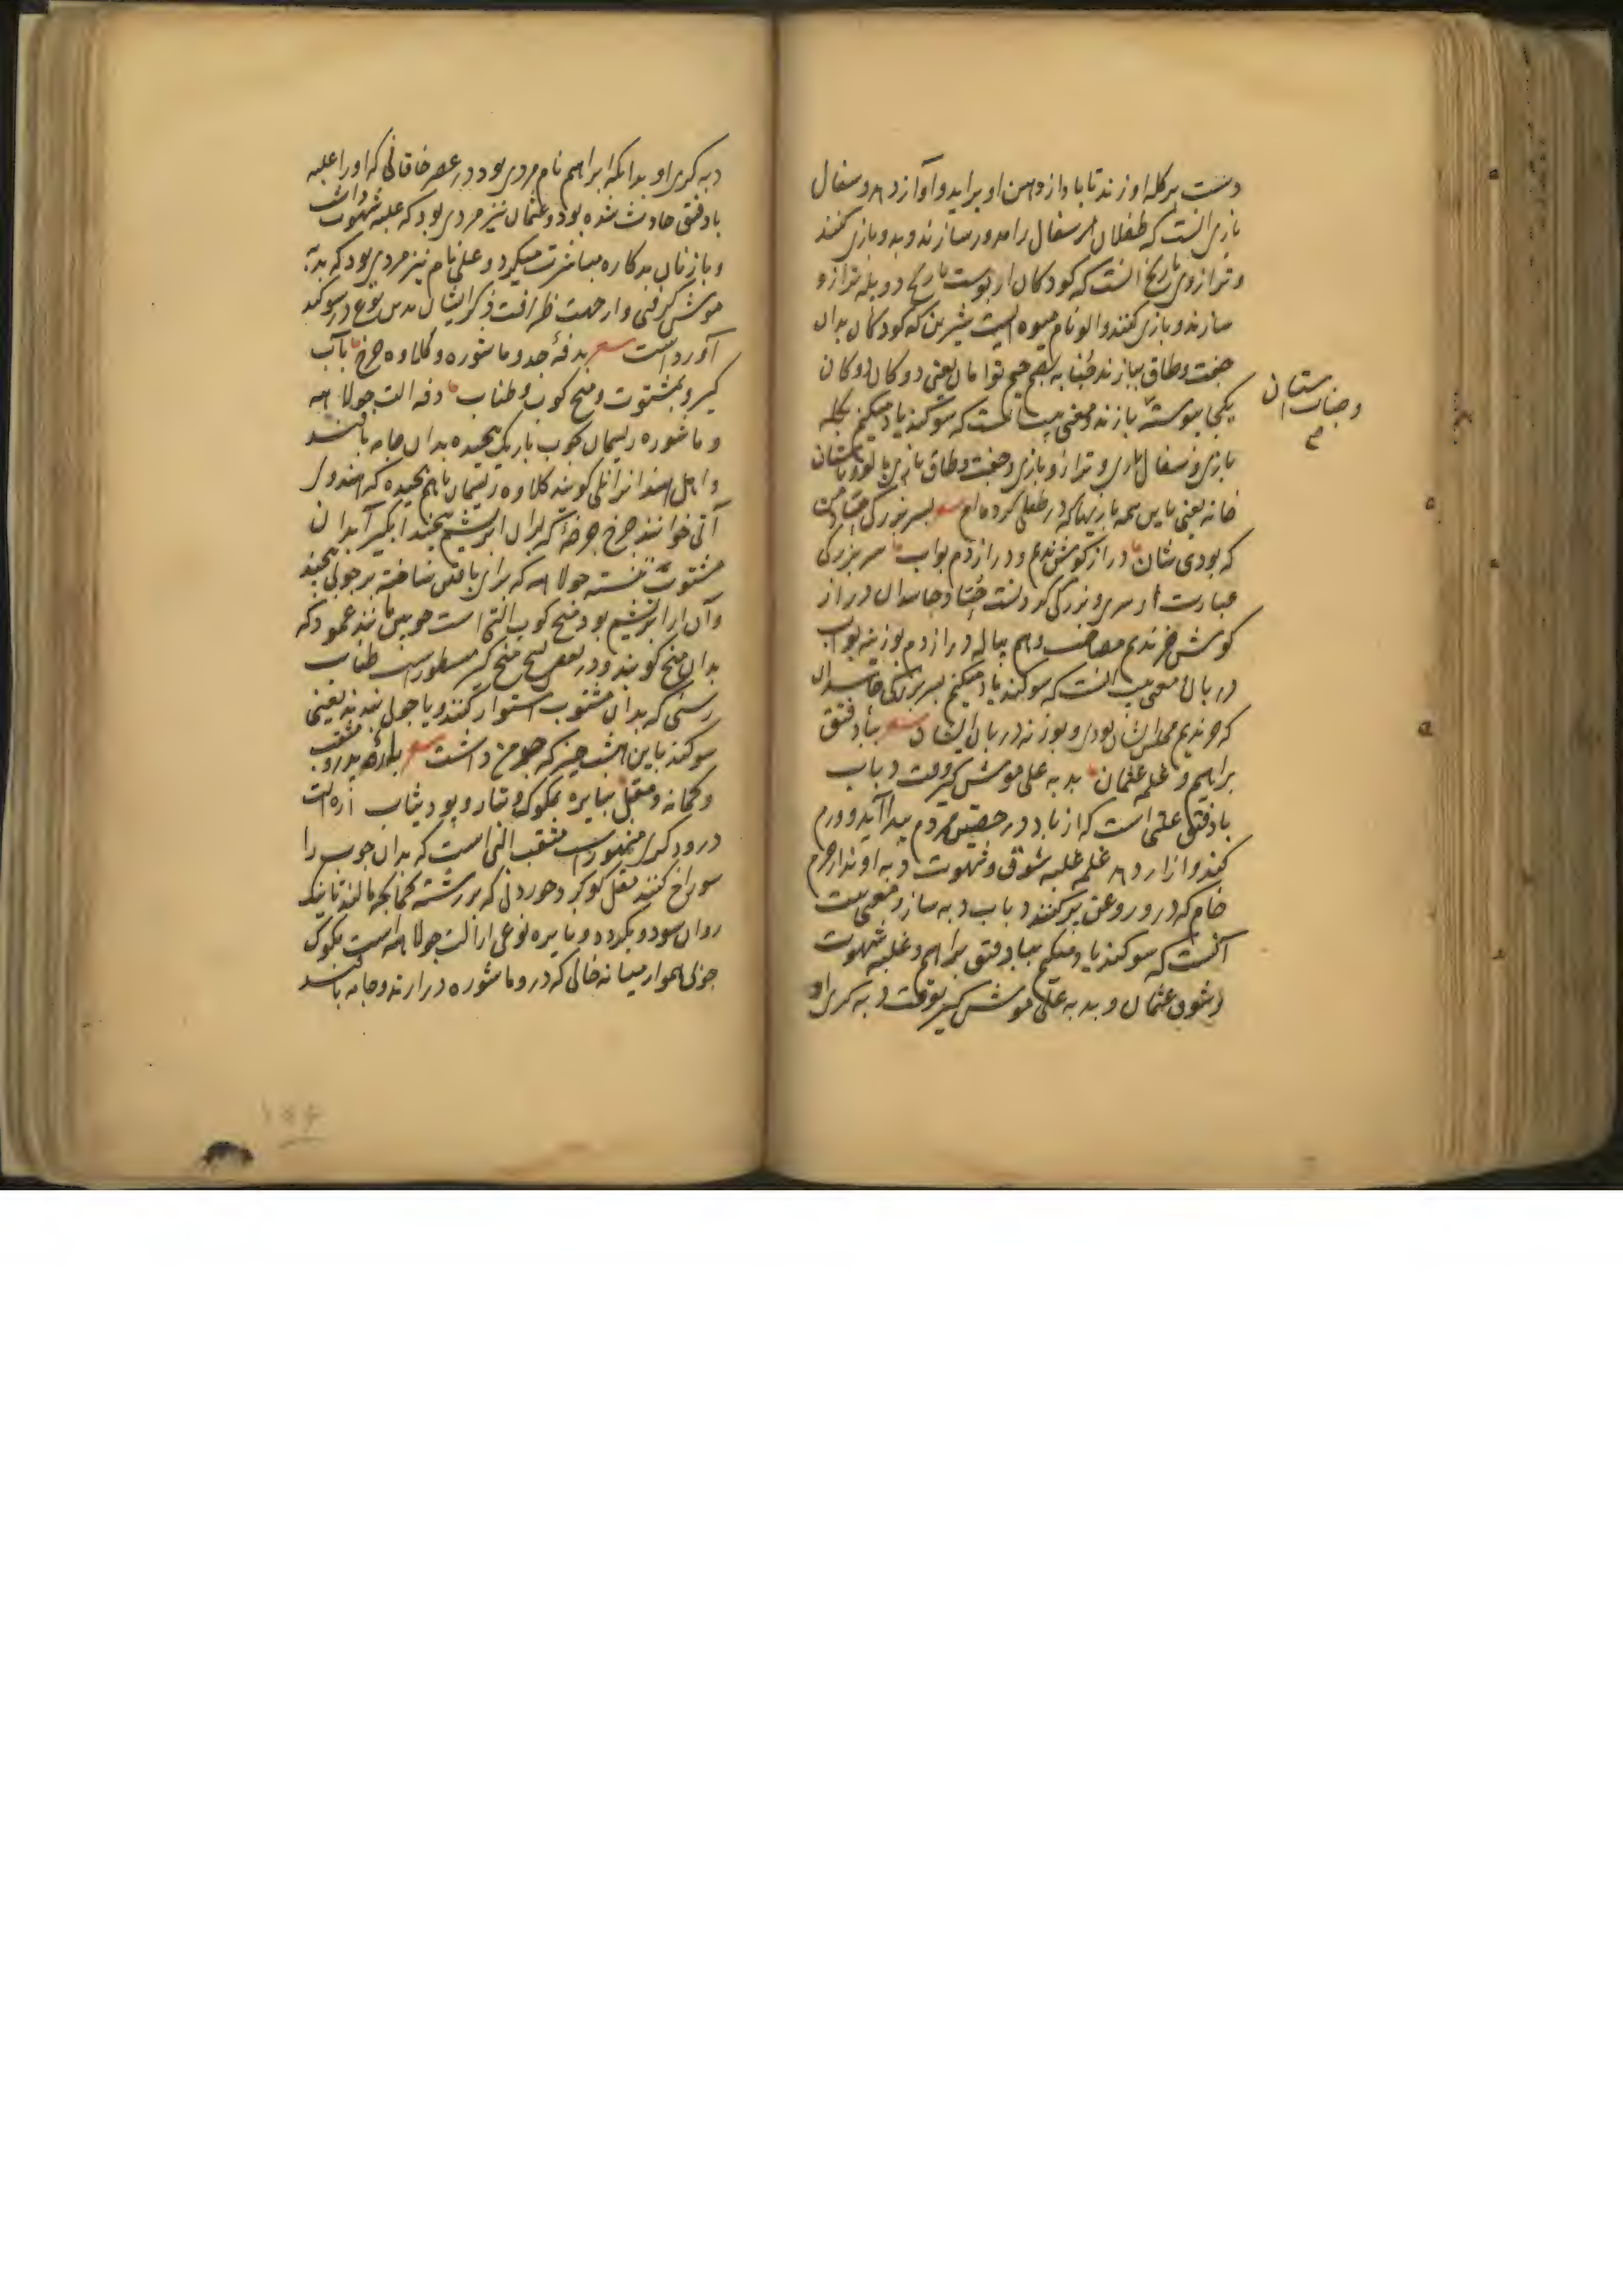 دست بر کله او زند تا باد از دهن او براید و آواز دهد و سفال
بازی انست که طفلان از سفال را مدور سازند و بدو بازی کنند
و ترازوی نارنج انست که کودکان از پوست نارنج دو پله ترازو
سازند و بازی کنند و الو نام میوه ایست شیرین که کودکان بدان
جفت و طاق ببازند جنابه بضم جیم توامان یعنی دو کان دوکان
یکجا پیوسته بازند و معنی بیت انست که سوکند یاد میکنم بکله
بازی و سفال بازی و ترازو بازی و جفت و طاق بازی بالو و باستان
خانه یعنی باین همه بازیها که در طفلی کرده ام بسر بزرکی
که بودی شان دراز کوش ندیم و دراز دم بواب سر بزرکی
عبارت از سری و بزرکی کردنست جنبا و جاسدان دراز
کوش خر ندیم مصاحب و هم پیاله دراز دم بوزینه بواب
دربان معنی بیت انست که سوکند یاد میکنم بسر بزرکی جاسدان
که خر ندیم مجلس شان بودی و بوزنه دربان ایشان ببادفتق
براهیم و غلمه عثمان بدبه علی موش کیر وقت دباب
بادفتق علتی است که از باد در خصیتین مردم پیدا آید و ورم
کند و ازار دهد غلمه غلبه شوق و شهوت دبه اوند از چرم
خام که درو روغن پر کنند دباب دبه ساز و معنی بیت
آنست که سوکند یاد میکنم ببادفتق براهیم و غلبه شهوت
و شوق عثمان و بدبه علی موش کیر بوقت دبه کری او
و جناب ستان
دبه کری او بدانکه ابراهیم نام مردی بود در عصر خاقانی که او را علة
بادفتق حادث شده بود و عثمان نیز مردی بود که غلبه شهوت داشت
و با زنان بدکاره مباشرت میکرد و علی نام نیز مردی بود که بدبه
موش کرفتی و از جهت ظرافت ذکر ایشان بدین نوع در سوکند
آورد است بدفهٔ جد و ماشوره و کلاوه چرخ بآب
کیر و بمشتوت و میخ کوب و طناب دفه الت جولاهه
و ماشوره ریسمان بچوب باریک پیچیده بدان جامه بافند
و اهل هند انرا نلی کویند کلاوه ریسمان باهم پیچیده که هندوان
آتی خوانند چرخ چرخهٔ که بران ابریشم پیچند ابکیر آبدان
مشتوت نشسته جولاهه که برای بافتن ساخته بر چوبی پیچند
و آن از ابریشم بود میخ کوب التی است چوبین مانند عمود که
بدان میخ کوبند و در بعض نسخ میخ کیر مسطور است طناب
رسنی که بدان مشتوب استوار کنند و یا چوبی بندند یعنی
سوکند باین هشت چیز که جد من داشت باره بدروب مثقب
و کمانه و مقل بمایره بمکوک و بتار و پود ثیاب اره الت
درودکری مشهور است مثقب التی است که بدان چوب را
سوراخ کنند مقل کوکرد خوردنی که بر رشته کمانچه مالند تا نیک
روان شود و بکردد و مایره نوعی از الت جولاهه است مکوک
چوبی هموار میانه خالی که درو ماشوره در ارند و جامه بافند